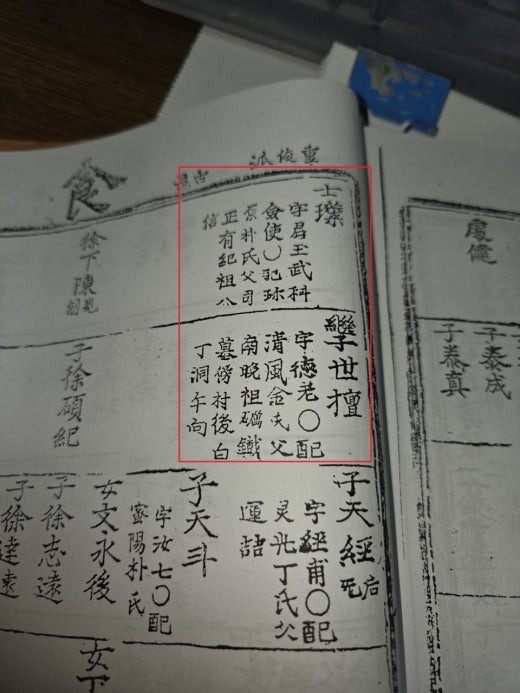 士璨
字君玉武科
僉使〇配珎
原朴氏父司
正有紀祖公
信
繼世擅
字德老〇配
清風金氏父
南晚祖礪鐵
墓傍村後白
丁洞午向
子天經
后
死
字經甫〇配
灵光丁氏父
運喆
子天斗
字汝七〇配
密陽朴氏
女文永後
子徐志遠
子徐達遠
徐下陳
子徐碩紀
食
聖俊派
處健
子泰成
子泰真